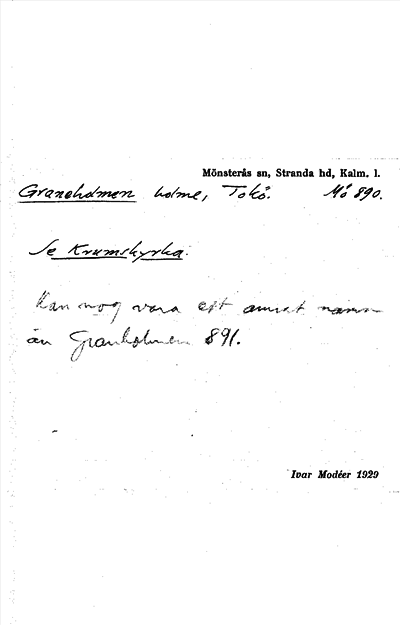 Mönsterås sn, Stranda hd, Kalm. l.
Granaholmen holme, Tokö. Mö 890.
Se Krumskyrka.
Kan nog vara ett annat namn
än Granholmen 891.
Ivar Modéer 1929